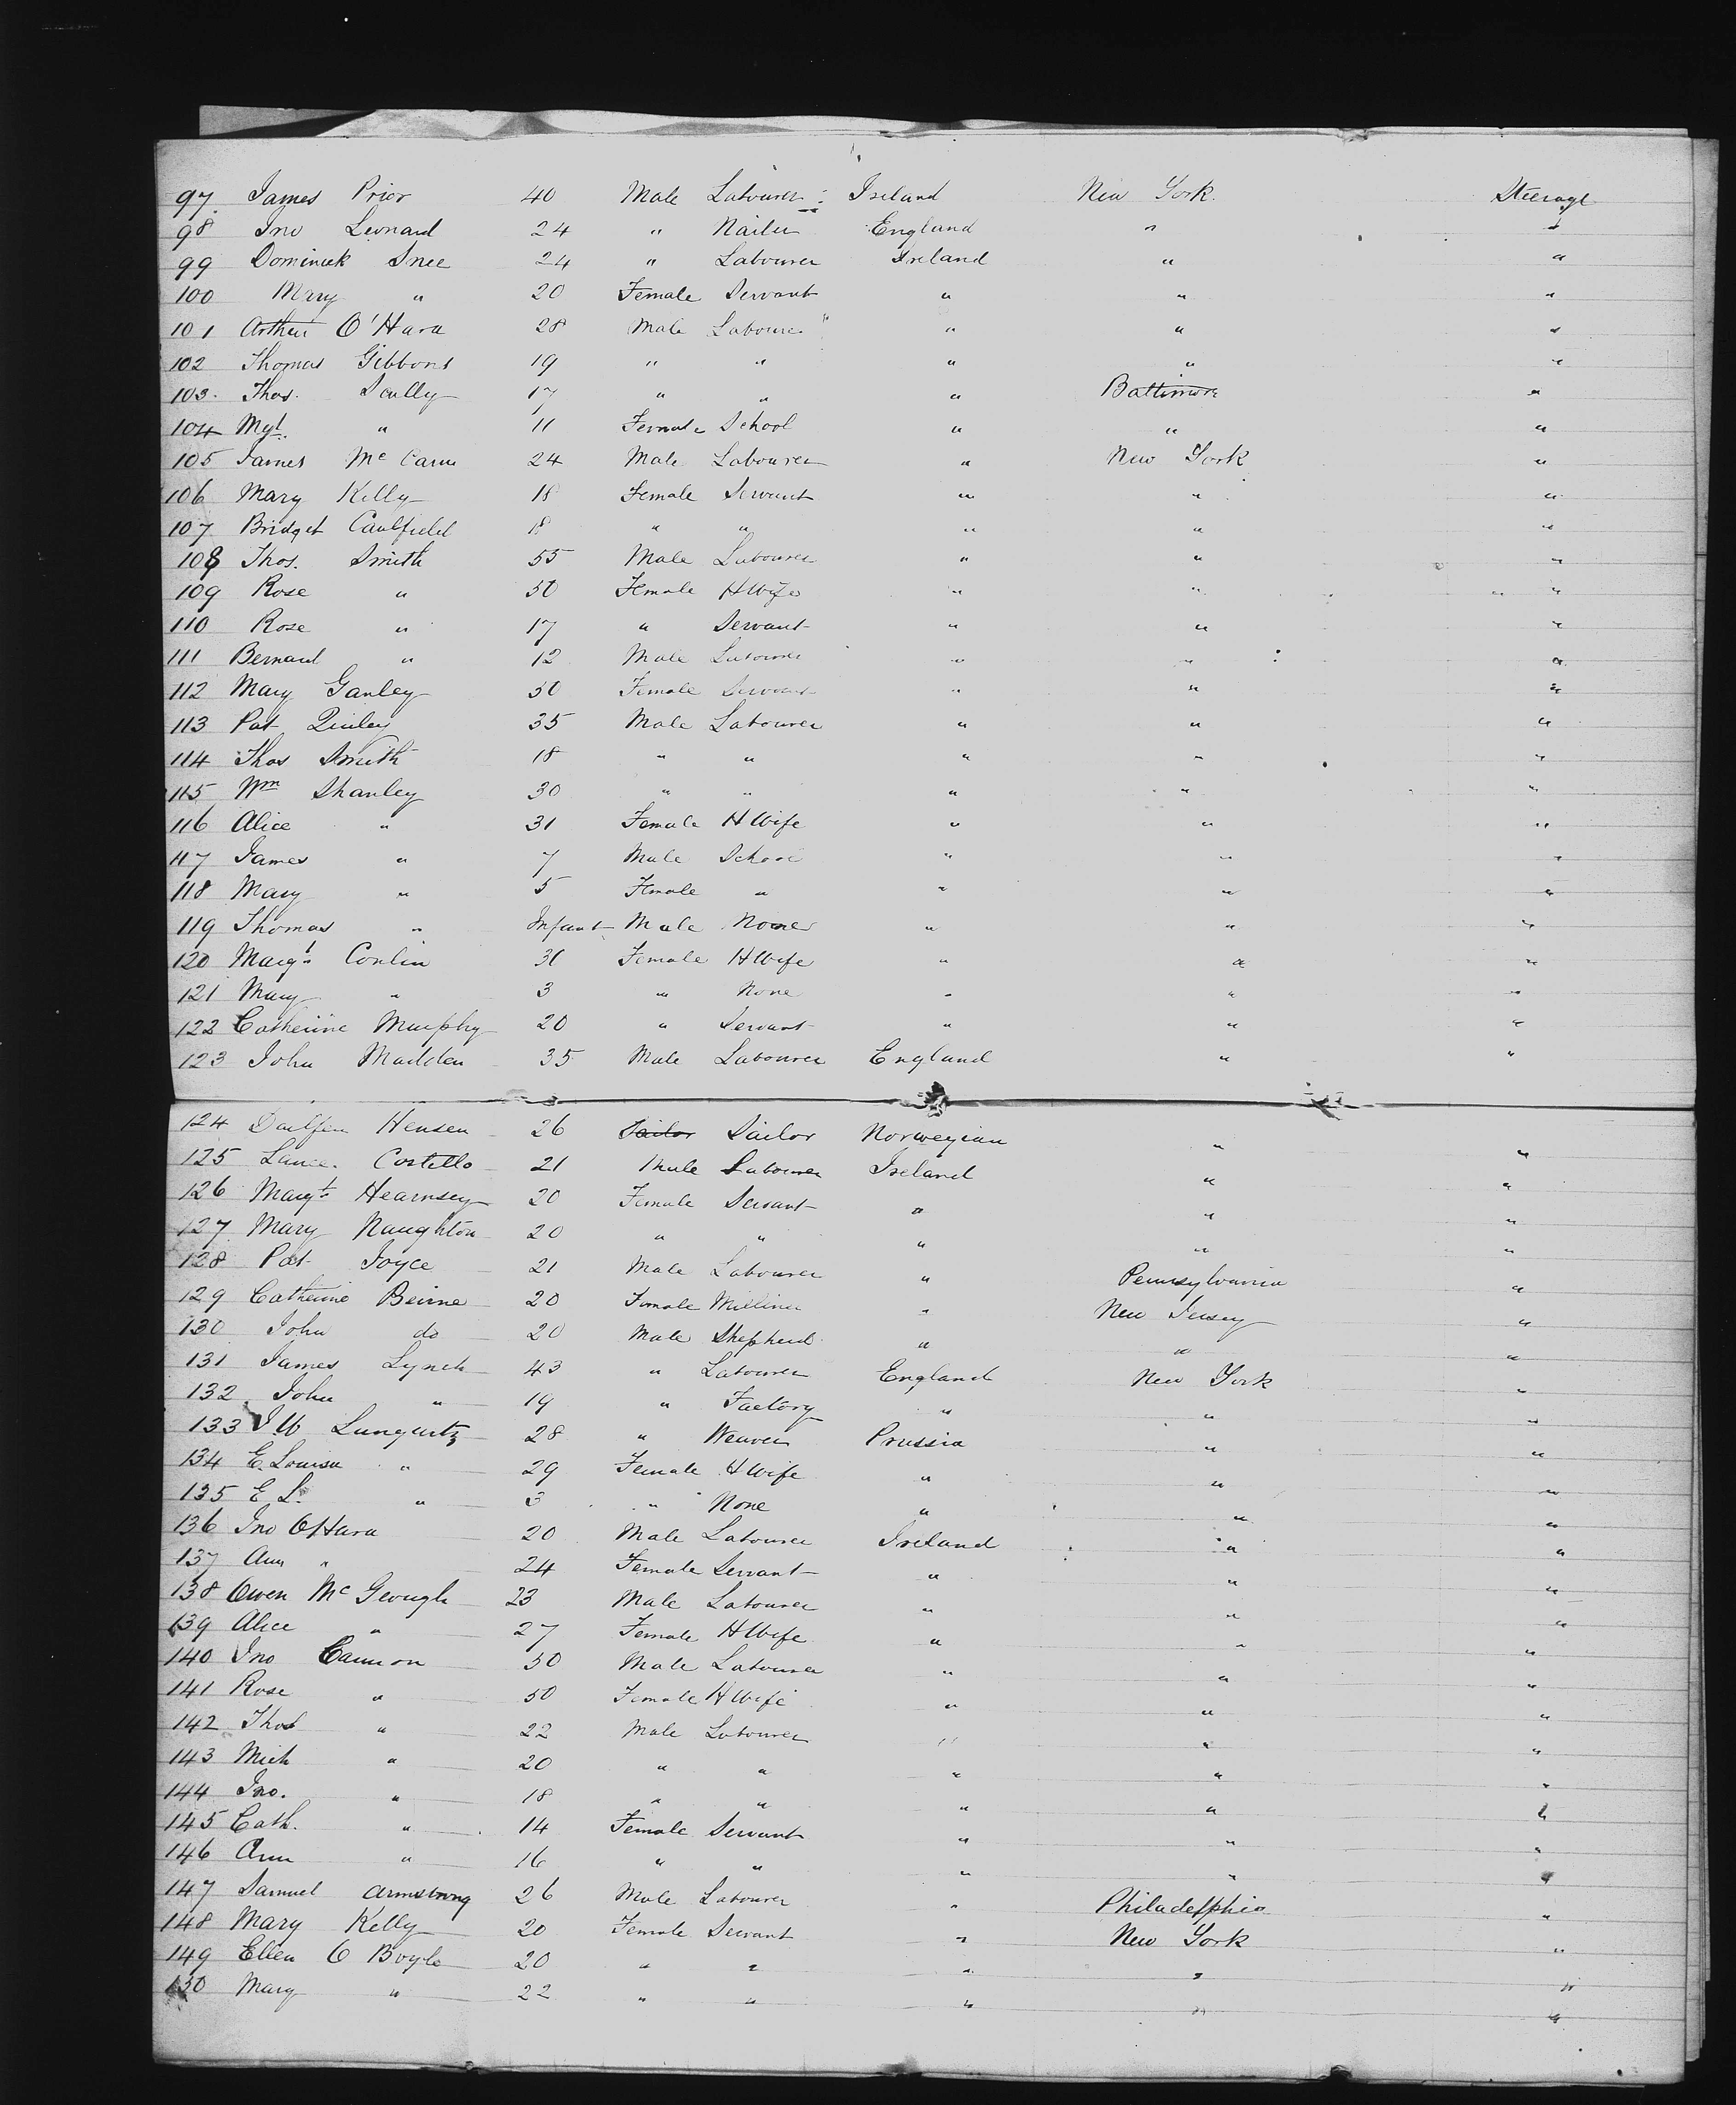 97. James Prior 40 Male Labourer Ireland New York. Steerage
98 Jno Leonard 24 " Nailer England " "
99 Dominick Snee 24 " Labourer Ireland " "
100 Mary " 20 Female Servant " " "
101 Arthur O'Hara 28 Male Labourer " " "
102 Thomas Gibbons 19 " " " " "
103. Thos. Scully 17 " " " Baltimore "
104 Mgt. " 11 Female School " " "
105 James Mc Cann 24 Male Labourer " New York "
106 Mary Kelly 18 Female Servant " " "
107 Bridget Caulfield 18 " " " " "
108 Thos. Smith 55 Male Labourer " " "
109 Rose " 50 Female HWife " " "
110 Rose " 17 " Servant " " "
111 Bernard " 12 Male Labourer " " "
112 Mary Ganley 50 Female Servant " " "
113 Pat 35 Male Labourer " " "
114 Thos Smith 18 " " " " "
115 Wm Shanley 30 " " " " "
116 Alice " 31 Female HWife " " "
117 James " 7 Male School " " "
118 Mary " 5 Female " " " "
119 Thomas " Infant Male None " " "
120 Margt Conlin Female HWife " " "
121 Mary " 3 " None " " "
122 Catherine Murphy 20 " Servant " " "
123 John Madden 35 Male Labourer England " "
124 Hensen 26 Sailor Sailor Norwegian " "
125 Lance. Costello 21 Male Labourer Ireland " "
126 Margt Hearnsey 20 Female Servant " " "
127 Mary Naughton 20 " " " " "
128 Pat Joyce 21 Male Labourer " Pennsylvania "
129 Catherine Beirne 20 Female Milliner " New Jersey "
130 John do 20 Male Shepherd " " "
131 James Lynch 43 " Labourer England New York "
132 John " 19 " Factory " " "
133 Lungwitz 28 " Weaver Prussia " "
134 E. Louisa " 29 Female HWife " " "
135 E L. " 3 " None " " "
136 Jno OHara 20 Male Labourer Ireland " "
137 Ann " 24 Female Servant " " "
138 Owen Mc Geough 23 Male Labourer " " "
139 Alice " 27 Female HWife " " "
140 Jno Cannon 50 Male Labourer " " "
141 Rose " 50 Female HWife " " "
142 Thos " 22 Male Labourer " " "
143 Mich " 20 " " " " "
144 Jno. " 18 " " " " "
145 Cath. " 14 Female Servant " " "
146 Ann " 16 " " " " "
147 Samuel Armstrong 26 Male Labourer " Philadelphia "
148 Mary Kelly 20 Female Servant " New York "
149 Ellen O Boyle 20 " " " " "
150 Mary " 22 " " " " "